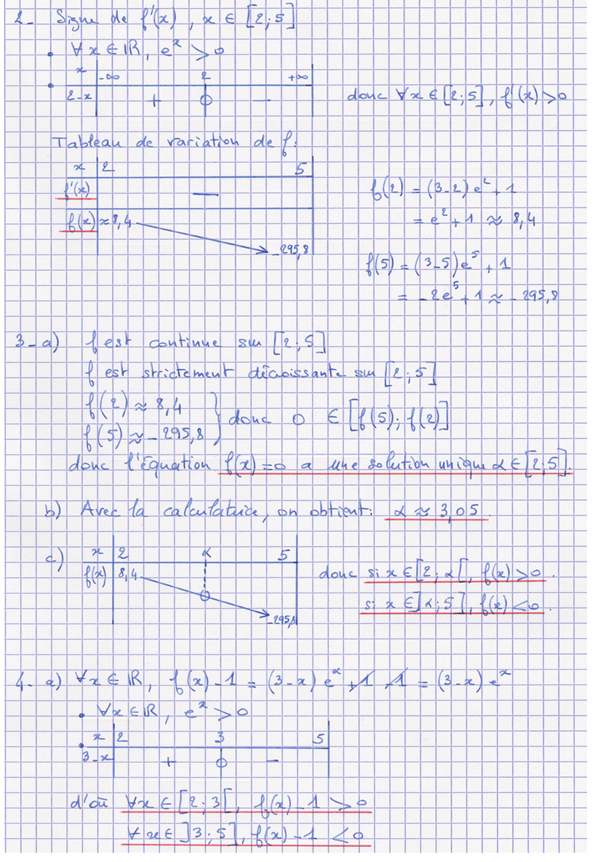 2- Signe de f'(x), x ∈ [2;5]
• ∀x∈ℝ, e^x > 0
• x | -∞ 2 +∞
2-x | + 0 -
donc ∀x∈[2;5], f'(x)>0
Tableau de variation de f:
x | 2 5
f'(x) | -
f(x) | ≈8,4 → -295,8
f(2) = (3-2)e²+1
= e²+1 ≈ 8,4
f(5) = (3-5)e⁵+1
= -2e⁵+1 ≈ -295,8
3-a) f est continue sur [2;5]
f est strictement décroissante sur [2;5]
f(2) ≈ 8,4
f(5) ≈ -295,8 } donc 0 ∈ [f(5); f(2)]
donc l'équation f(x)=0 a une solution unique α∈[2;5].
b) Avec la calculatrice, on obtient: α ≈ 3,05
c) x | 2 α 5
f(x) | 8,4 → 0 → -295,8
donc si x∈[2; α[, f(x)>0.
si x∈]α;5], f(x)<0.
4- a) ∀x∈ℝ, f(x)-1 = (3-x)e^x +1 -1 = (3-x)e^x
• ∀x∈ℝ, e^x > 0
• x | 2 3 5
3-x | + 0 -
d'où ∀x∈[2;3[, f(x)-1 > 0
∀x∈]3;5], f(x)-1 < 0